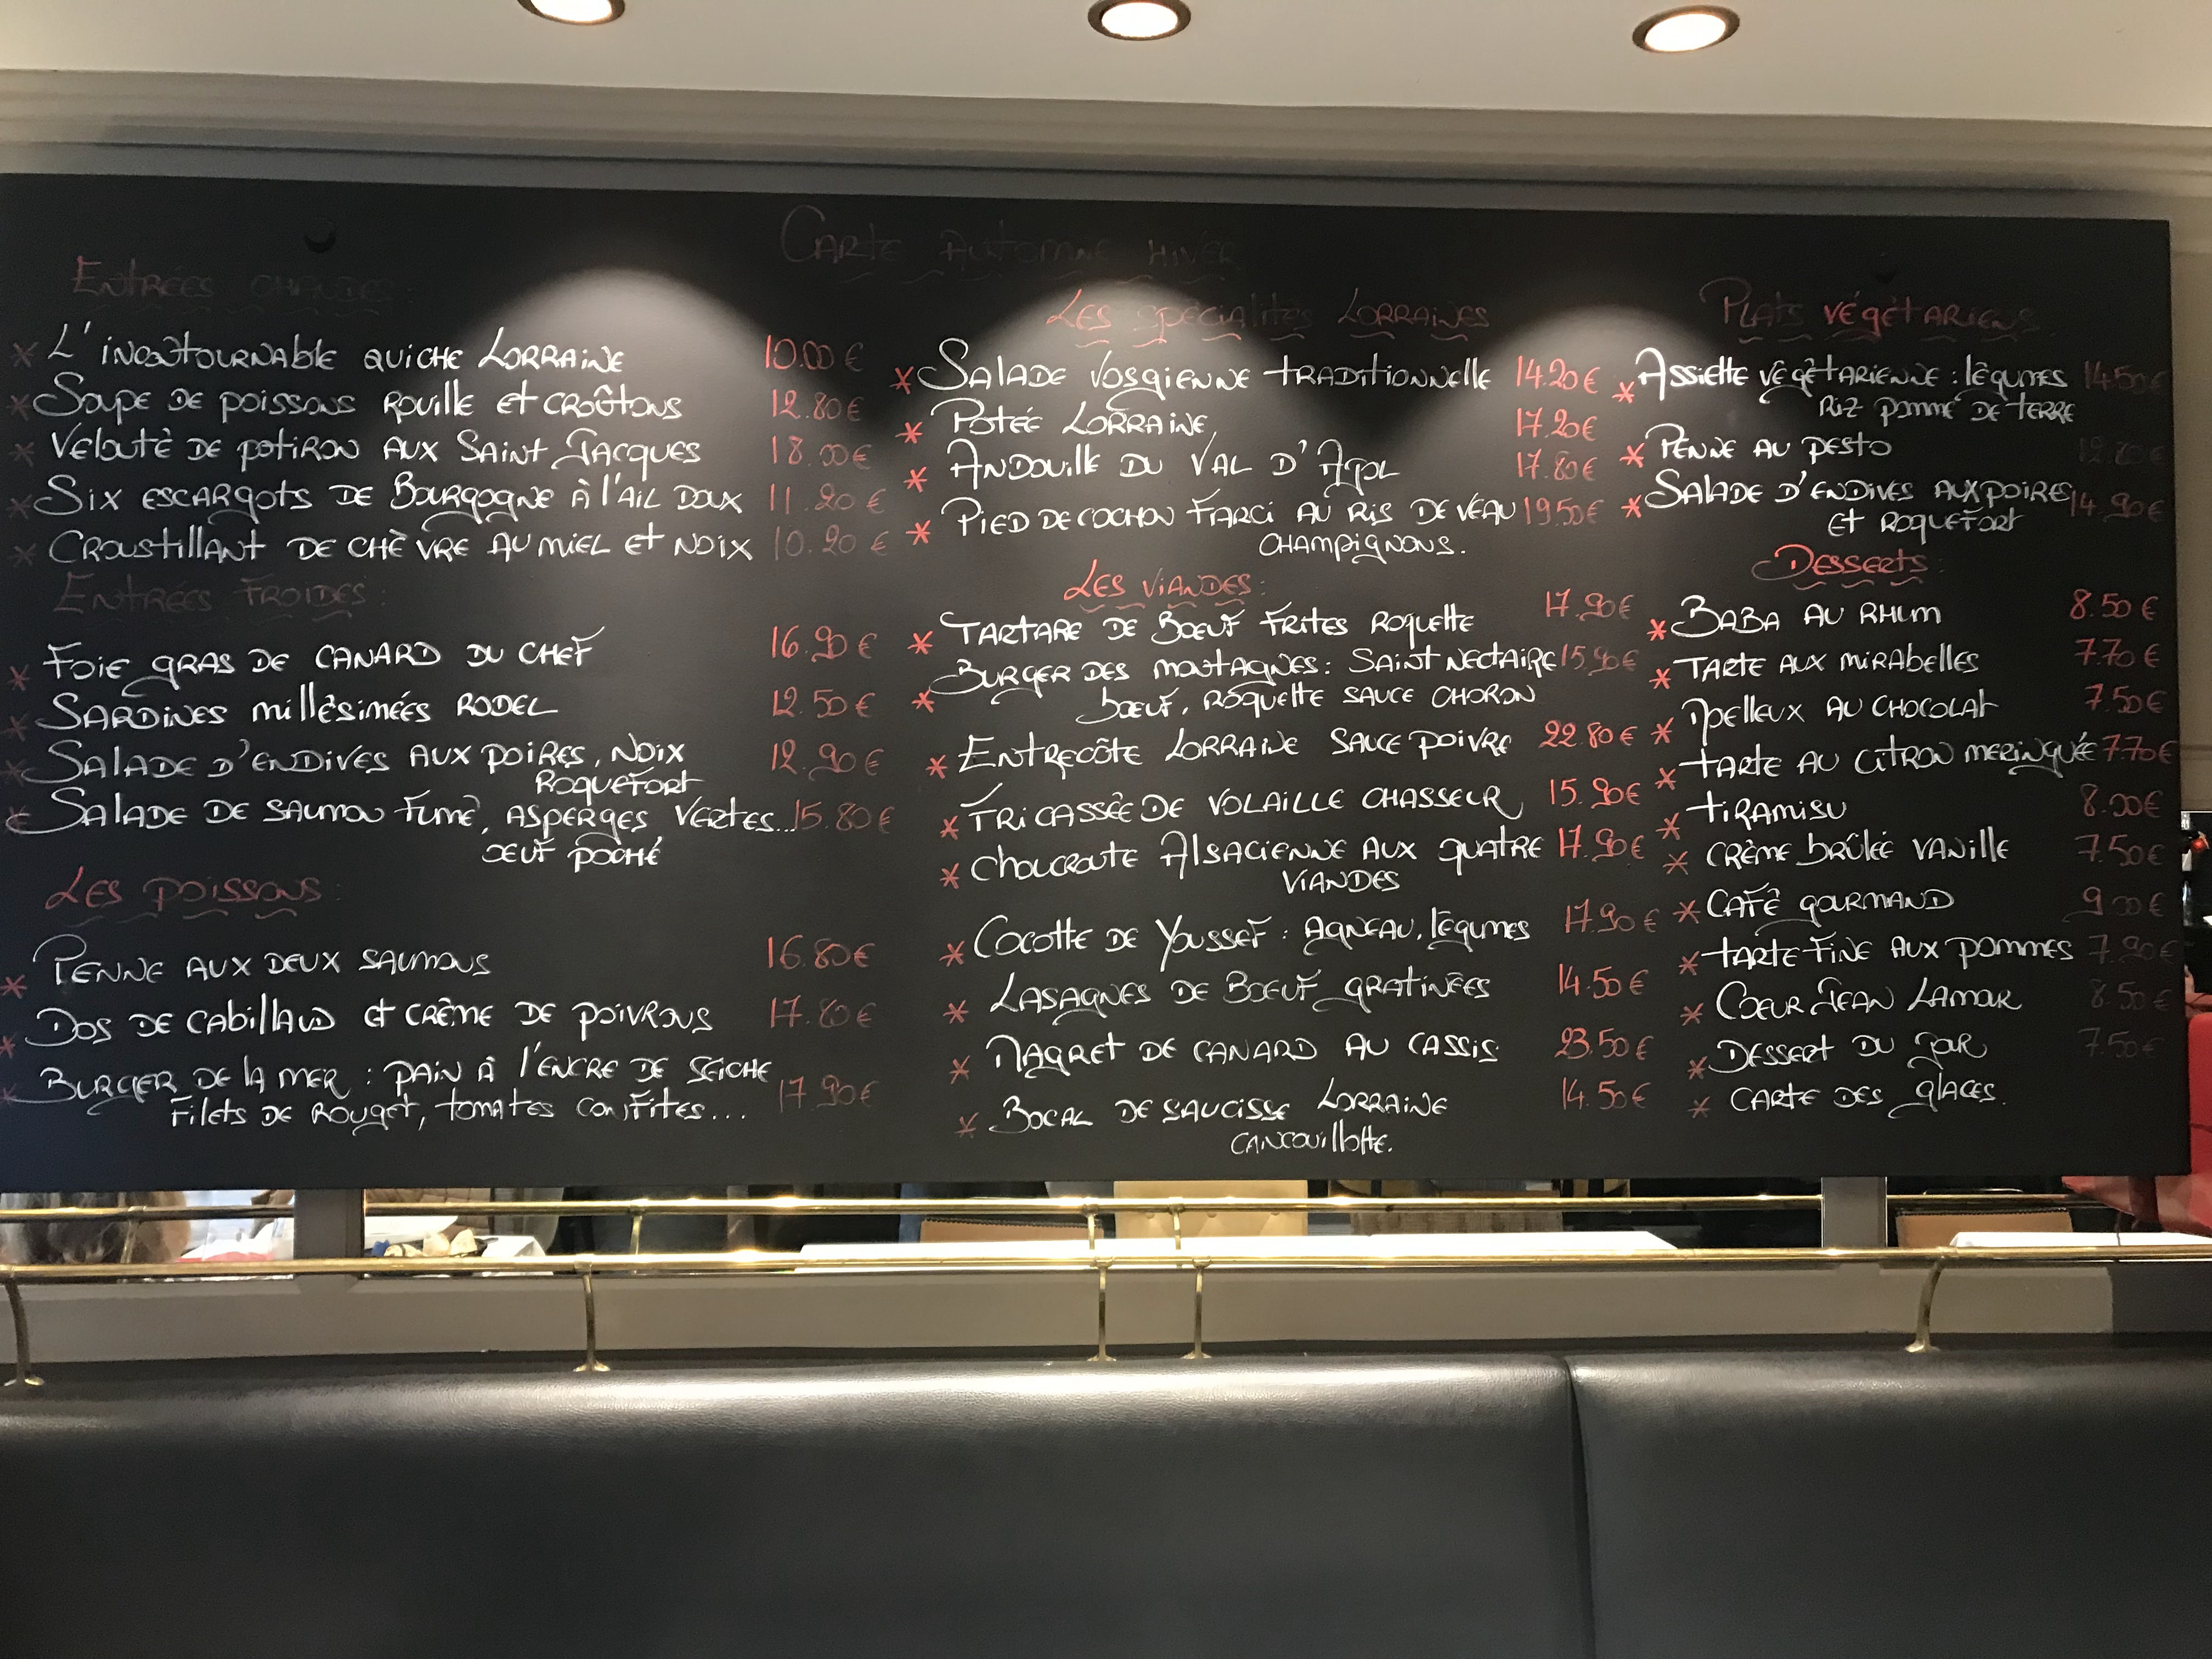 Carte Automne Hiver
Entrées chaudes:
* L'incontournable quiche Lorraine 10.00 €
* Soupe de poissons rouille et croûtons 12.80 €
* Velouté de potiron aux Saint Jacques 18.00 €
* Six escargots de Bourgogne à l'ail doux 11.20 €
* Croustillant de chèvre au miel et noix 10.20 €
Entrées froides:
* Foie gras de canard du chef 16.90 €
* Sardines millésimées Rodel 12.50 €
* Salade d'endives aux poires, noix 12.90 €
Roquefort
* Salade de saumon fumé, asperges vertes... 15.80 €
œuf poché
Les poissons:
* Penne aux deux saumons 16.80 €
* Dos de cabillaud et crème de poivrons 17.80 €
* Burger de la mer: pain à l'encre de seiche
filets de rouget, tomates confites... 17.90 €
Les spécialités Lorraines
* Salade Vosgienne traditionnelle 14.20 €
* Potée Lorraine, 17.20 €
* Andouille du Val d'Ajol 17.80 €
* Pied de cochon farci au ris de veau 19.50 €
champignons.
Les viandes:
* Tartare de bœuf frites roquette 17.90 €
* Burger des montagnes: Saint Nectaire 15.90 €
bœuf, roquette sauce choron
* Entrecôte Lorraine sauce poivre 22.80 €
* Fricassée de volaille chasseur 15.90 €
* Choucroute Alsacienne aux quatre 17.90 €
viandes
* Cocotte de Youssef: agneau, légumes 17.90 €
* Lasagnes de bœuf gratinées 14.50 €
* Magret de canard au cassis 23.50 €
* Bocal de saucisse Lorraine 14.50 €
cancouillotte.
Plats végétariens
* Assiette végétarienne: légumes 14.50 €
riz pomme de terre
* Penne au pesto
* Salade d'endives aux poires 14.90 €
et roquefort
Desserts:
* Baba au rhum 8.50 €
* Tarte aux mirabelles 7.70 €
* Moelleux au chocolat 7.50 €
* Tarte au citron merinquée 7.70 €
* Tiramisu 8.00 €
* Crème brûlée vanille 7.50 €
* Café gourmand 9.00 €
* Tarte fine aux pommes 7.90 €
* Coeur Jean Lamour 8.50 €
* Dessert du jour 7.50 €
* Carte des glaces.